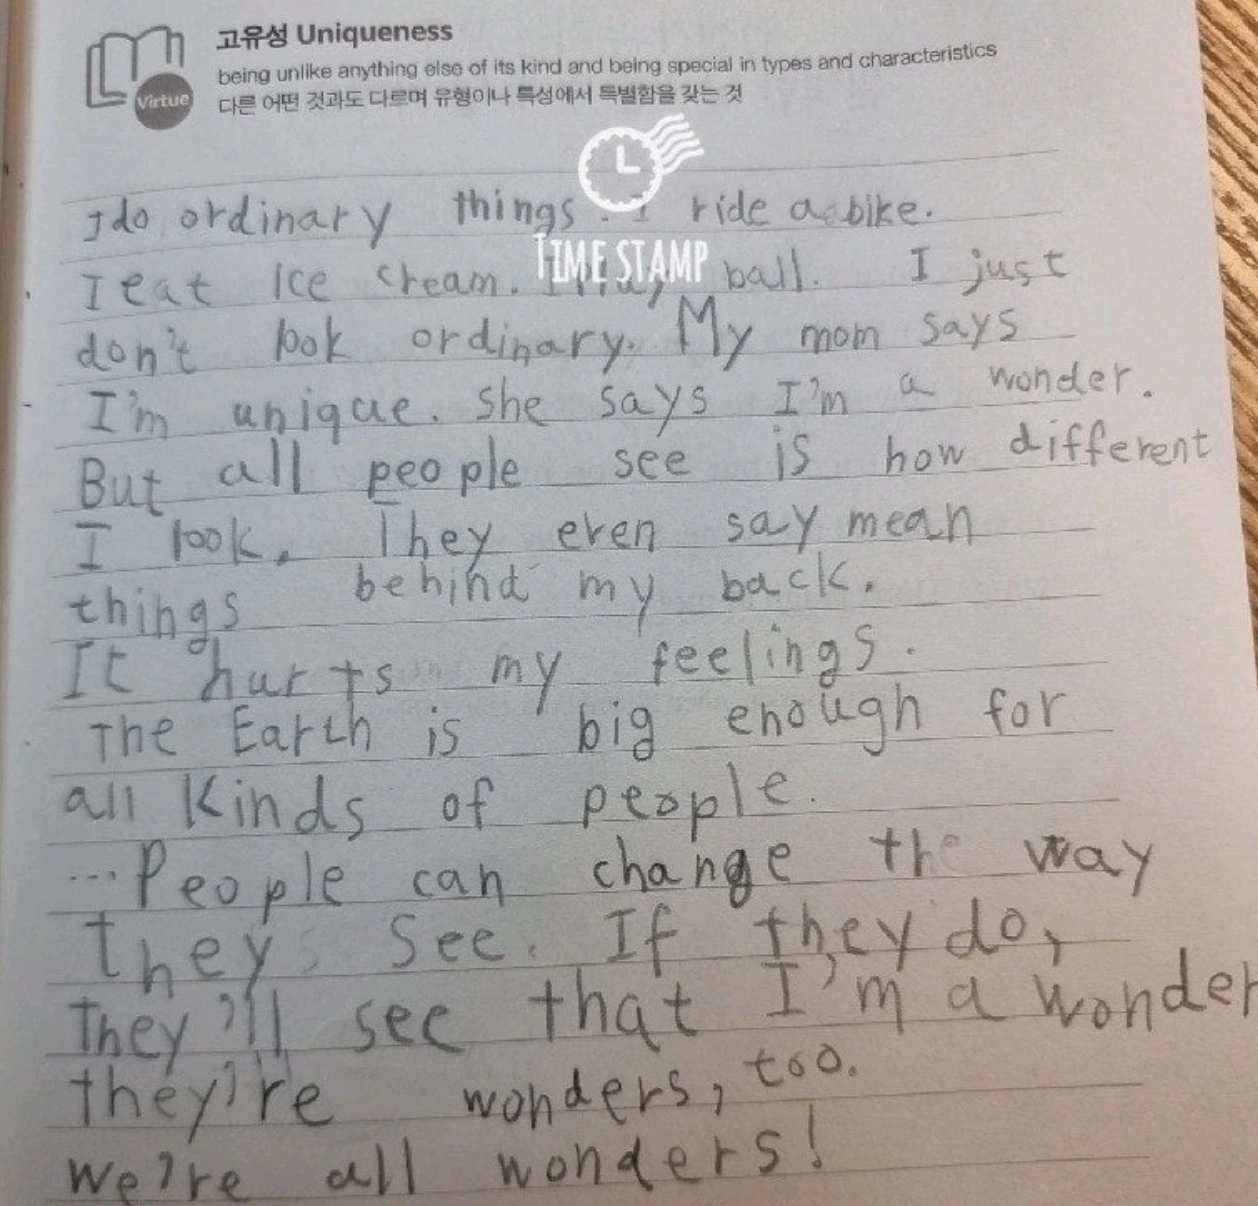 고유성 Uniqueness
being unlike anything else of its kind and being special in types and characteristics
다른 어떤 것과도 다르며 유형이나 특성에서 특별함을 갖는 것
Virtue
I do ordinary things. I ride a bike.
TIME STAMP
I eat Ice cream. I ball. I just
don't look ordinary. My mom says
I'm unique. She says I'm a wonder.
But all people see is how different
I look. They even say mean
things behind my back.
It hurts my feelings.
The Earth is big enough for
all Kinds of people.
...People can change the way
they see. If they do,
They'll see that I'm a wonder
they're wonders, too.
we're all wonders!